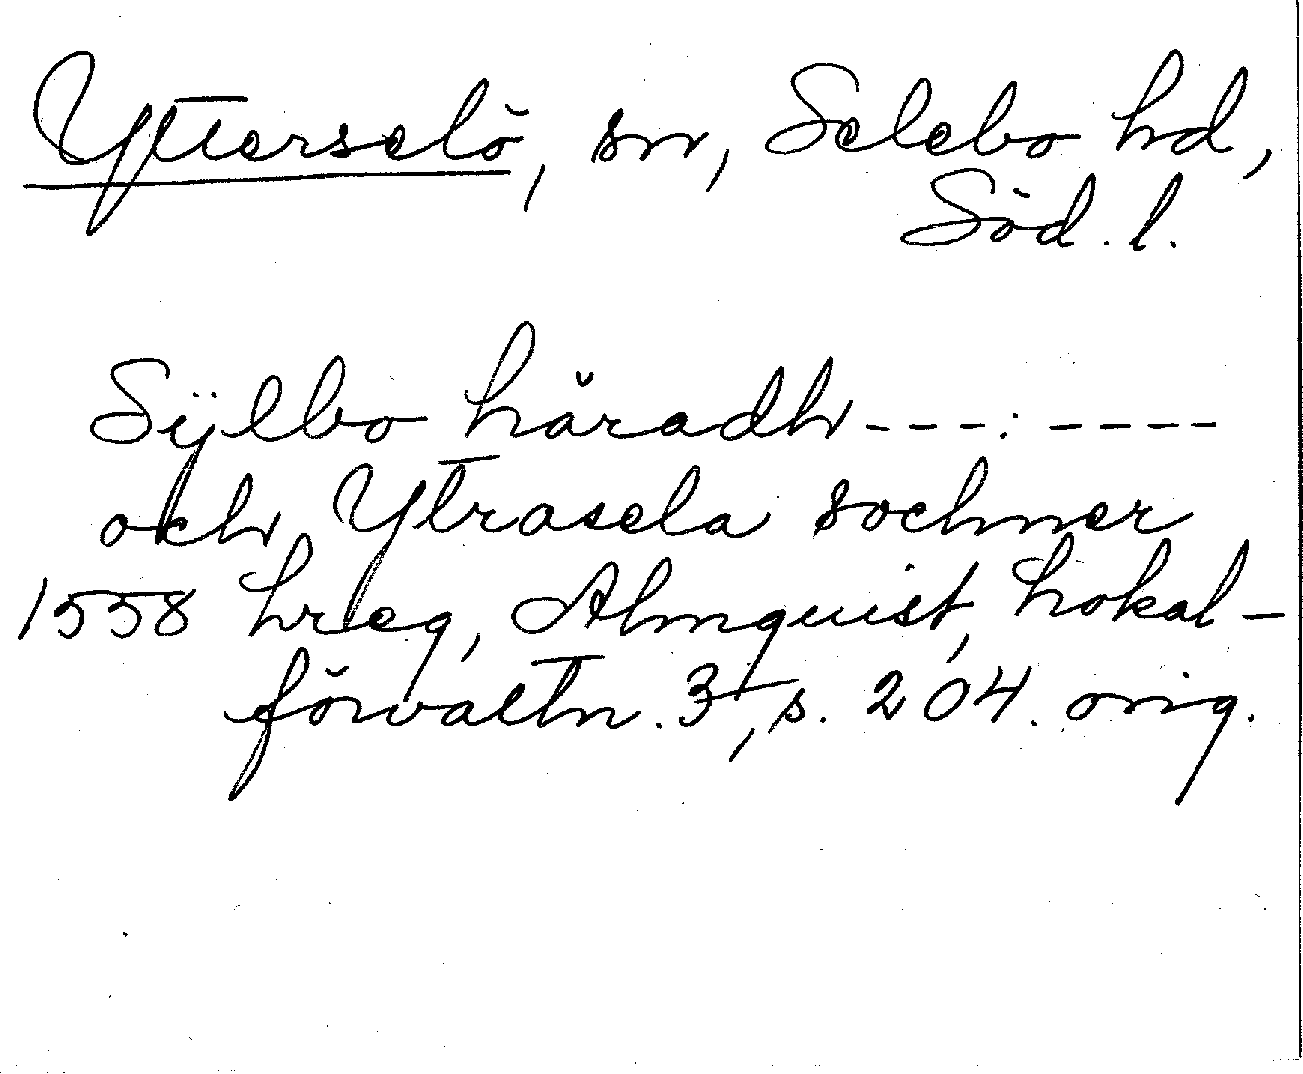 Ytterselö, sn, Selebo hd,
Söd. l.
Sÿlbo häradh ---: ----
och Ytrasela sochner
1558 hreg, Almquist, Lokal-
förvaltn. 3, s. 204. orig.